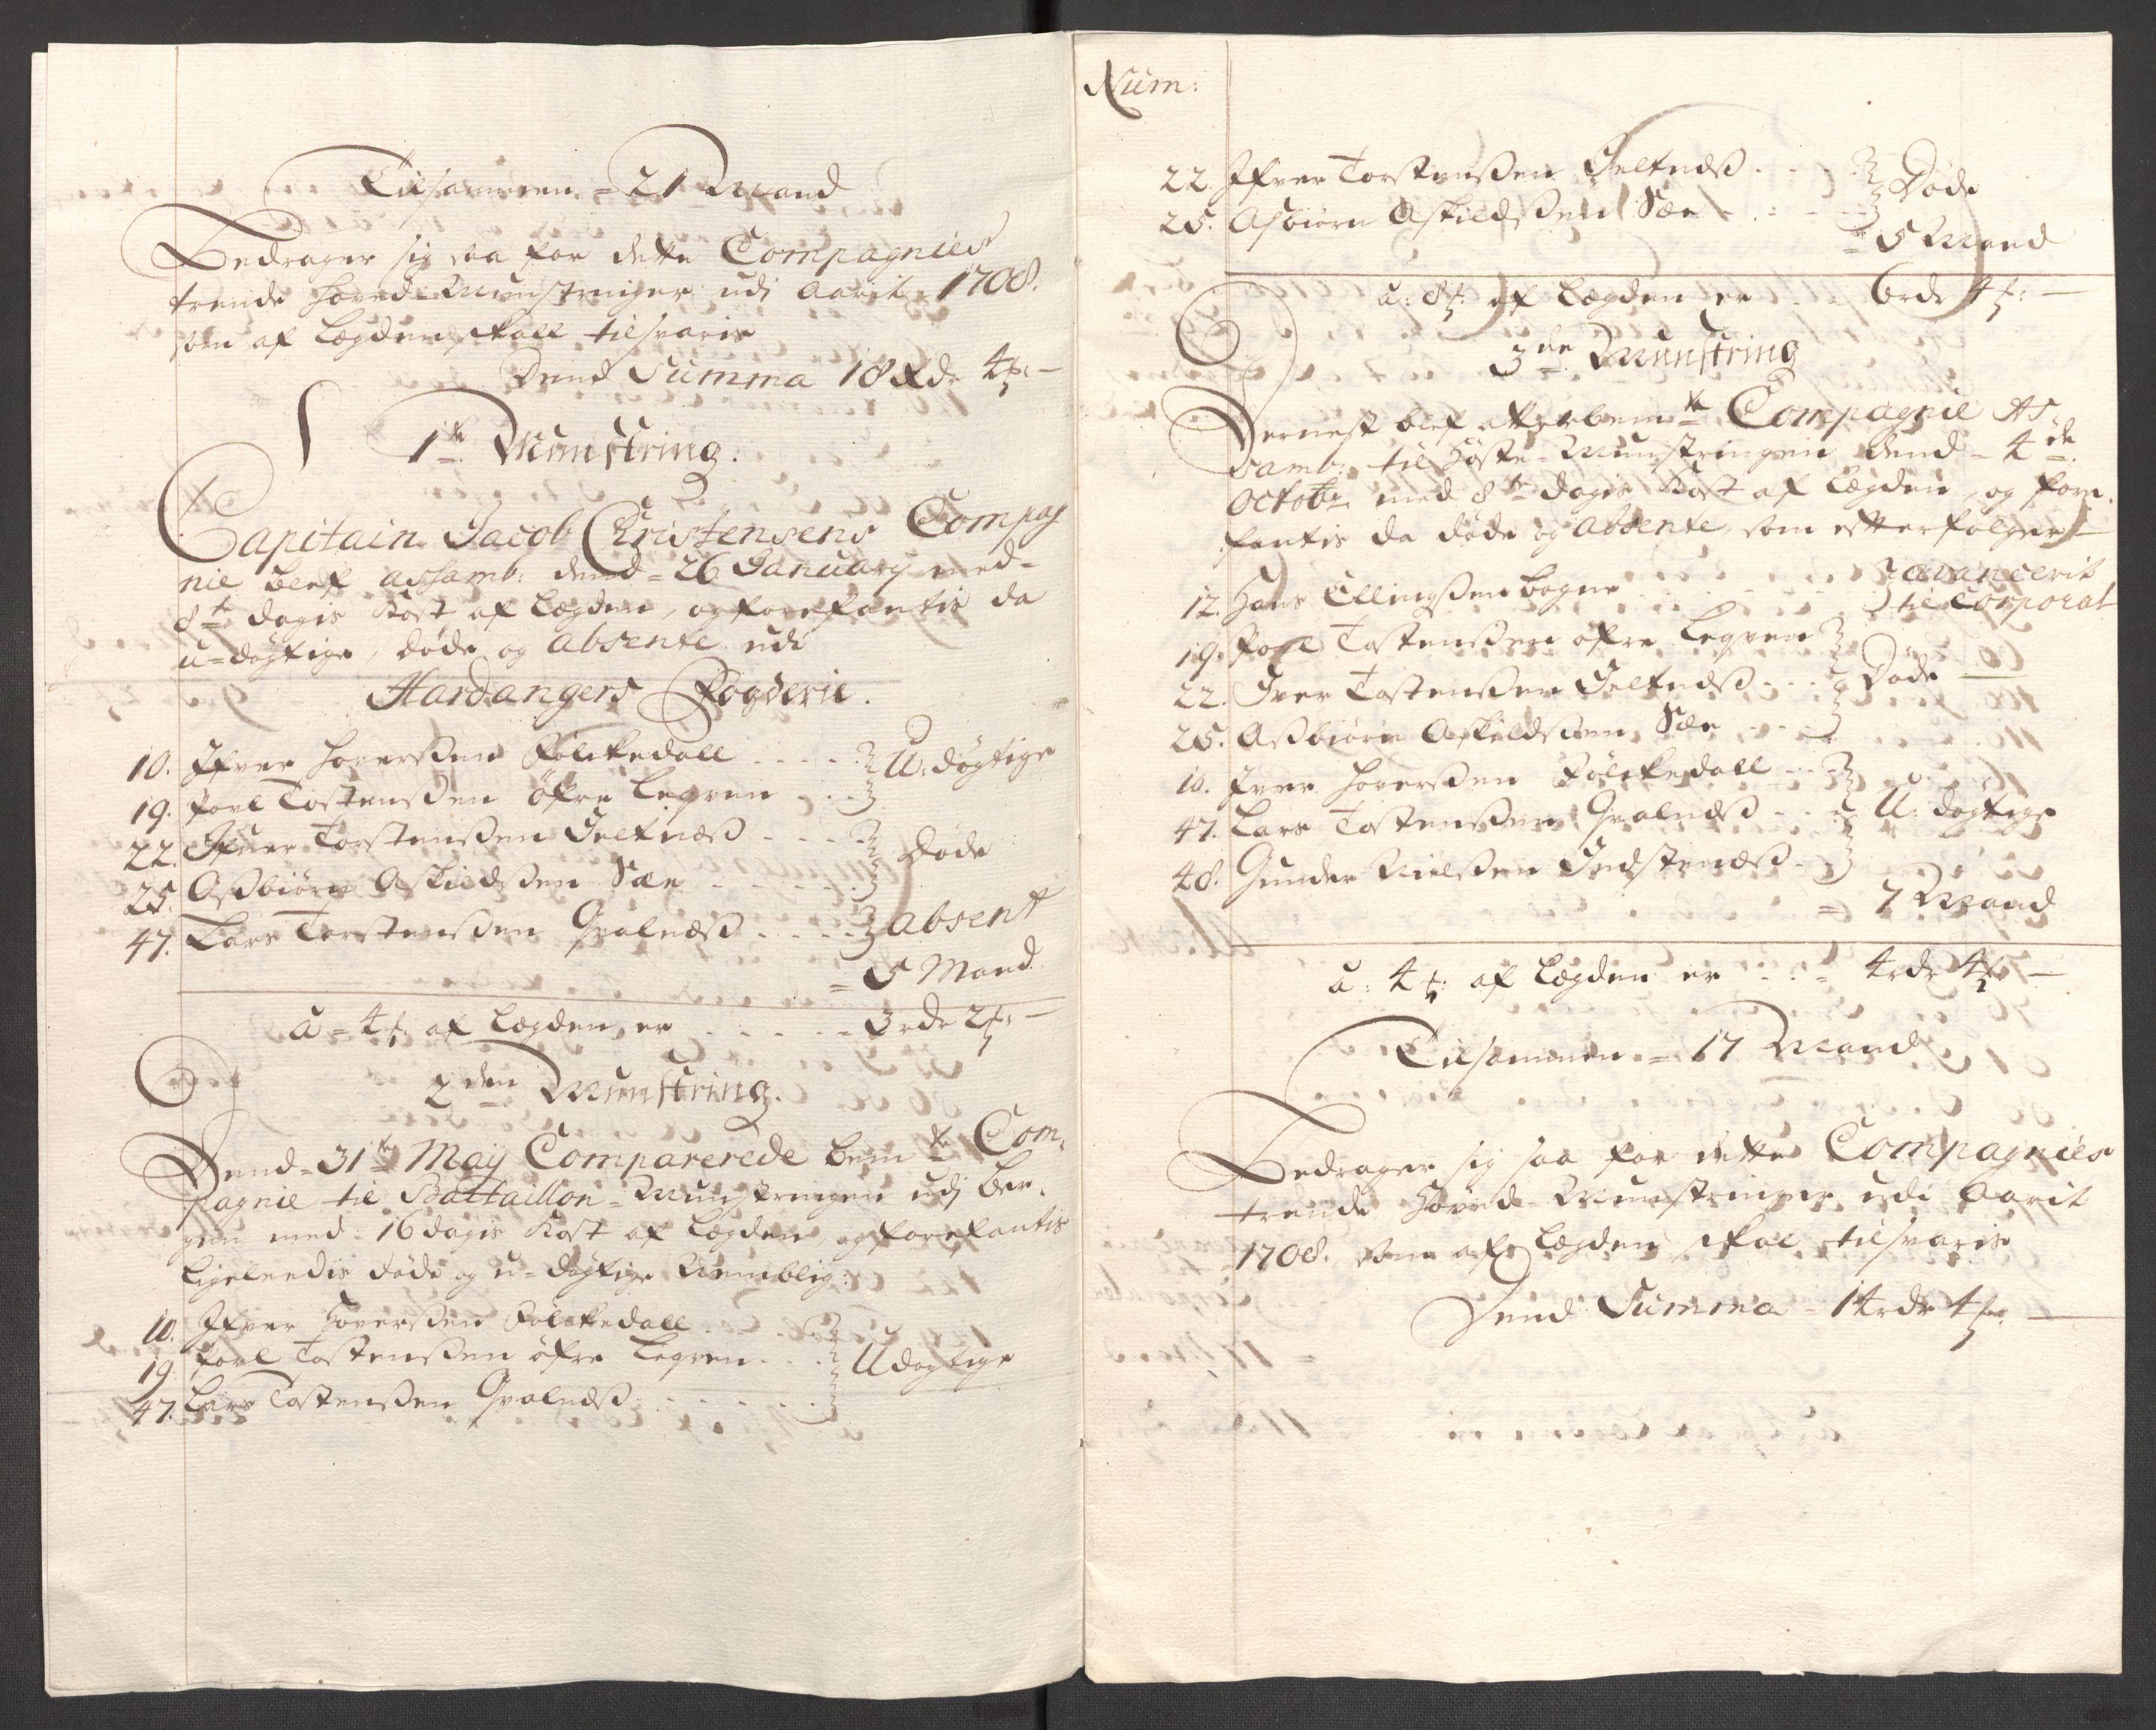 Tilsammen = 21 Mand
Bedrager sig saa for dette Compagnies
trende Hoved-Munstringer udi Aarit 1708.
som af Legden skall tilsvaris
Dend Summa 18 Rdr 4
1te Munstring.
Capitain Jacob Christensens Compag
nie blef assamb: dend = 26 January med
8te dagis Kost af Legden, og forefantis da
u=døgtige, døde og absente udi
Hardangers Fogderie.
10. Ifver Hoverssen Folckedall . . . . U: døgtige
19. Povl Tostenssen øfre Legren . . .
22. Ifuer Torstenssen Jeltnæss . . . Døde
25. Assbiørn Askieldssen Sæe . . . .
47. Lars Torstenssen Gralnæss . . . . absent
= 5 Mand
a = 4 af Legden er . . . . . = 3 rdr 2
2den Munstring.
Dend = 31te Maij Comparerede bemte Com,
pagnie til Battaillon = Munstringen udj Ber,
gen med 16 dagis Kost af Legden, og forefantis
ligeledis døde og u=døgtige Nemblig:
10. Ifver Hoverssen Folckedall . . .
19. Povl Tostenssen øfre Legren . . . Udøgtige
47. Lars Tostenssen Gralnæss . . . . .
Num:
22. Ifver Torstenssen Jeltnæss . . . . Døde
25. Asbiørn Askildssen Sæe . . . .
= 5 Mand
a: 8 af Legden er . . = 6 rdr 4
3die Munstring
Dernest blef atterbemte Compagnie As,
samb: til Høste-Munstringen dend = 4de
Octobr: med 8te dagis Kost af Legden, og fore,
fantis da døde og absente, som efterfølger
12. Hans Ellingssen Bagne . . . . . avancerit
til Corporal
19. Povl Tostenssen øfre Legren
22. Iver Tostenssen Jeltnæss . . . Døde
25. Assbiørn Askieldssen Sæe . . .
10. Iver Hoverssen Folckedall . .
47. Lars Tostenssen Gralnæss . . . U: døgtige
48. Gunder Nielssen Indstenæss .
= 7 Mand
a: 4 af Legden er . . . = 4 rdr 4
Tilsammen = 17 Mand
Bedrager sig saa for dette Compagnies
trende Hoved-Munstringer udi Aarit
1708. som af Legden skal tilsvaris
Dend Summa = 14 rdr 4